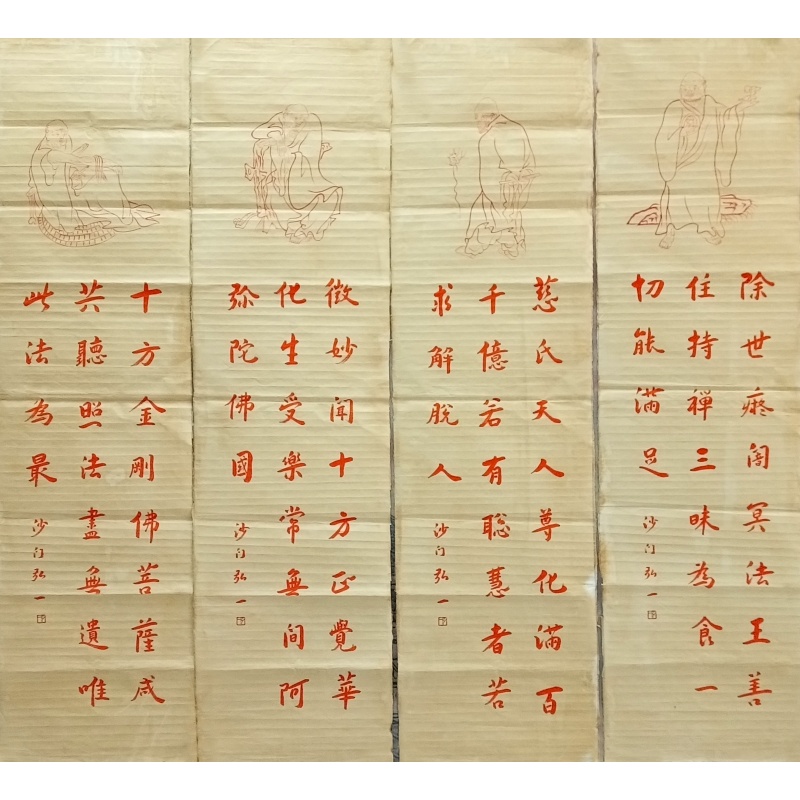 除世痴闇冥法王善
住持禪三昧為食一
切能滿足
沙門弘一
慈氏天人尊化滿百
千億若有聡慧者若
求解脫人
沙門弘一
微妙聞十方正覺華
化生受樂常無間阿
弥陀佛國
沙門弘一
十方金剛佛菩薩咸
共聽照法盡無遺唯
此法為最
沙門弘一